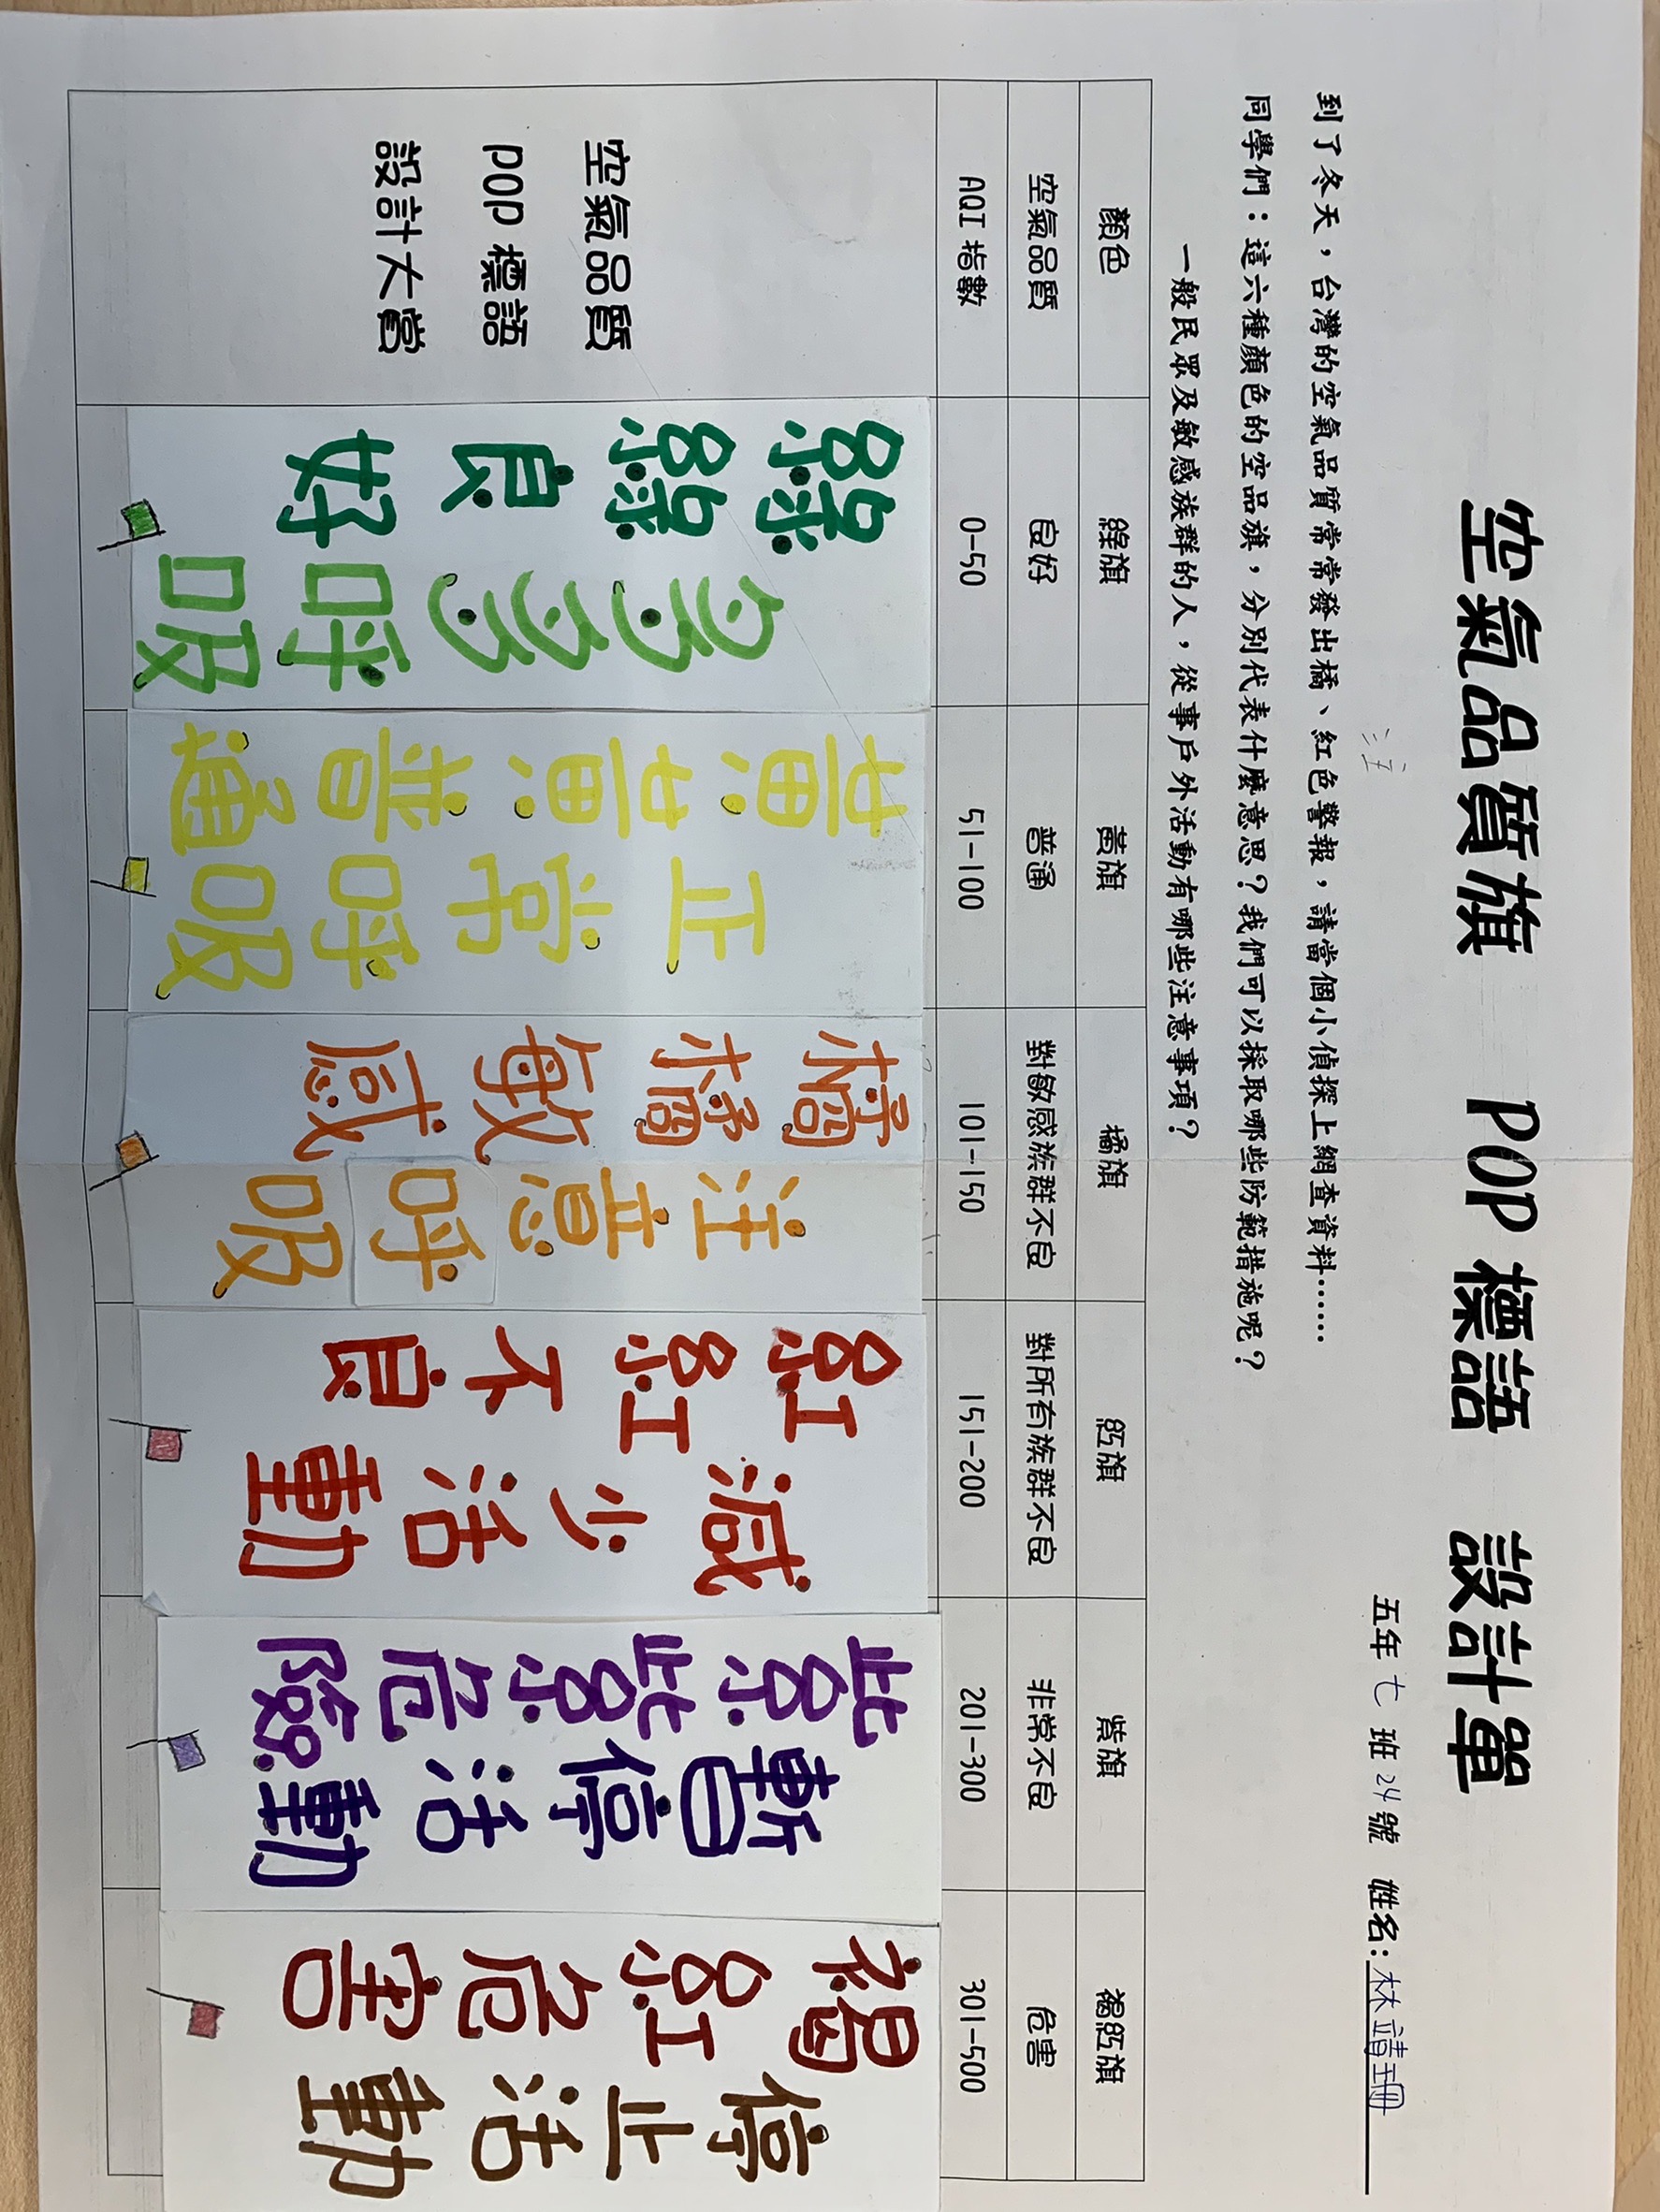 空氣品質旗 POP 標語 設計單
五年 七 班 24 號 姓名:林靖珊
到了冬天,台灣的空氣品質常常發出橘、紅色警報,請當個小偵探上網查資料......
同學們:這六種顏色的空品旗,分別代表什麼意思?我們可以採取哪些防範措施呢?
一般民眾及敏感族群的人,從事戶外活動有哪些注意事項?
顏色 綠旗 黃旗 橘旗 紅旗 紫旗 褐紅旗
空氣品質 良好 普通 對敏感族群不良 對所有族群不良 非常不良 危害
AQI 指數 0-50 51-100 101-150 151-200 201-300 301-500
空氣品質
pop 標語
設計大賞
綠綠良好
多多呼吸
黃黃普通
正常呼吸
橘橘敏感
注意呼吸
紅紅不良
減少活動
紫紫危險
暫停活動
褐紅危害
停止活動